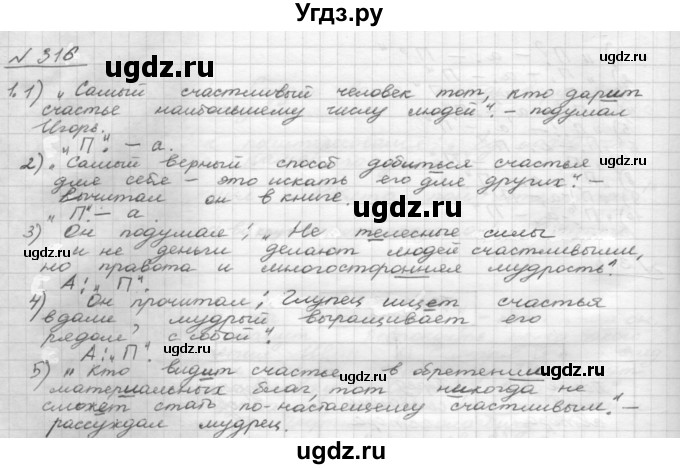 Угдз.ру
N 316
1.1) „Самый счастливый человек тот, кто дарит
счастье наибольшему числу людей". – подумал
Игорь.
„П". – а.
2) „Самый верный способ добиться счастья
для себя – это искать его для других". –
вычитал он в книге.
„П". – а.
3) Он подумал: „Не телесные силы
и не деньги делают людей счастливыми,
но правота и многосторонняя мудрость".
А: „П".
4) Он прочитал: „Глупец ищет счастья
вдали, мудрый выращивает его
рядом, с собой".
А: „П".
5) „Кто видит счастье в обретении
материальных благ, тот никогда не
сможет стать по-настоящему счастливым." –
рассуждал мудрец.
ugdz.ru
ugdz.ru
ugdz.ru
ugdz.ru
ugdz.ru
ugdz.ru
ugdz.ru
ugdz.ru
ugdz.ru